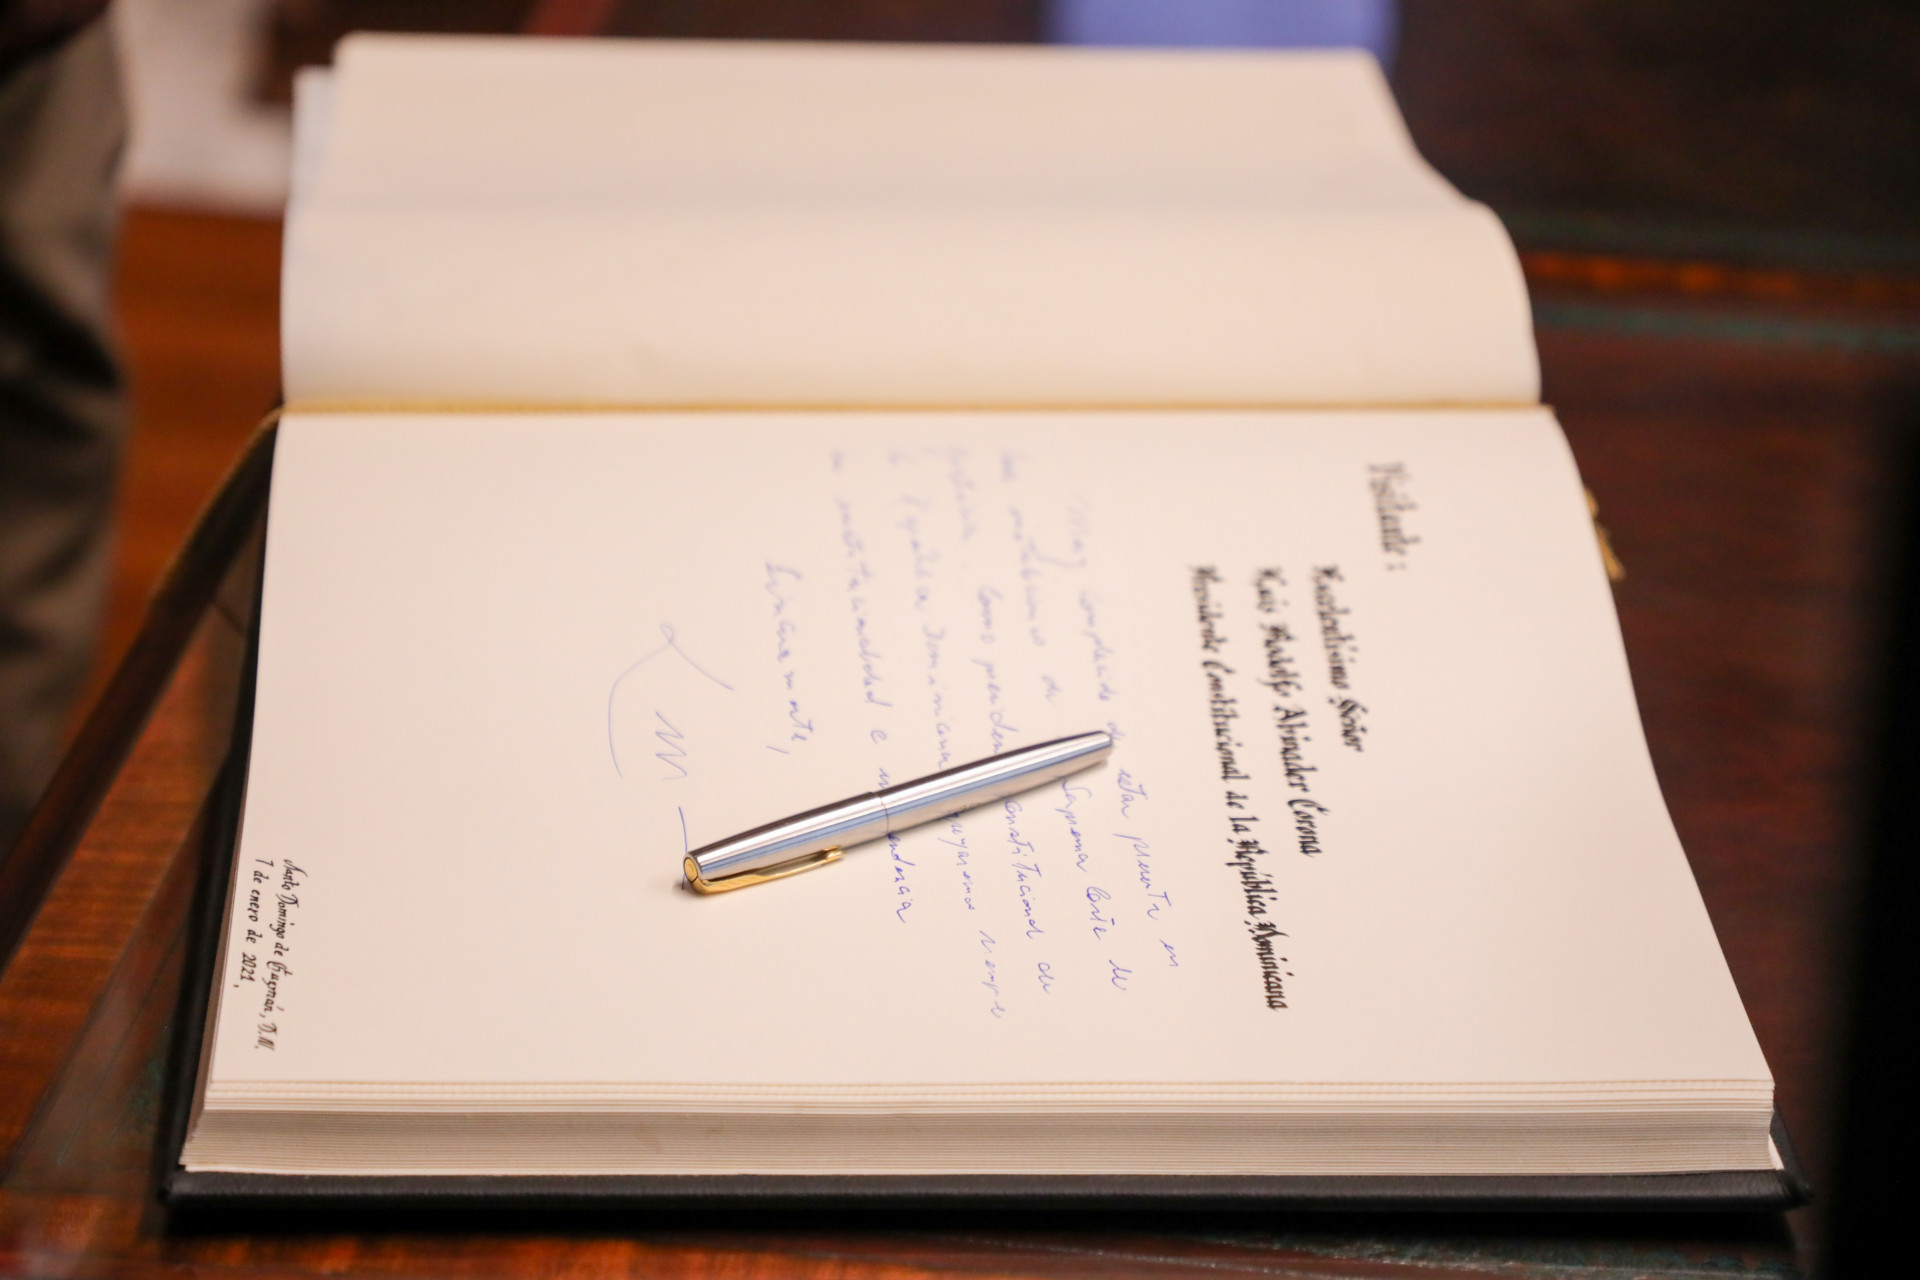 Visitante:
Excelentísimo Señor
Luis Rodolfo Abinader Corona
Presidente Constitucional de la República Dominicana
Muy complacido de estar presente en
de Suprema Corte de
Como presidente constitucional de
la República Dominicana apoyaremos siempre
su institucionalidad e
Sinceramente,
Santo Domingo de Guzmán, D.N.
7 de enero de 2021,